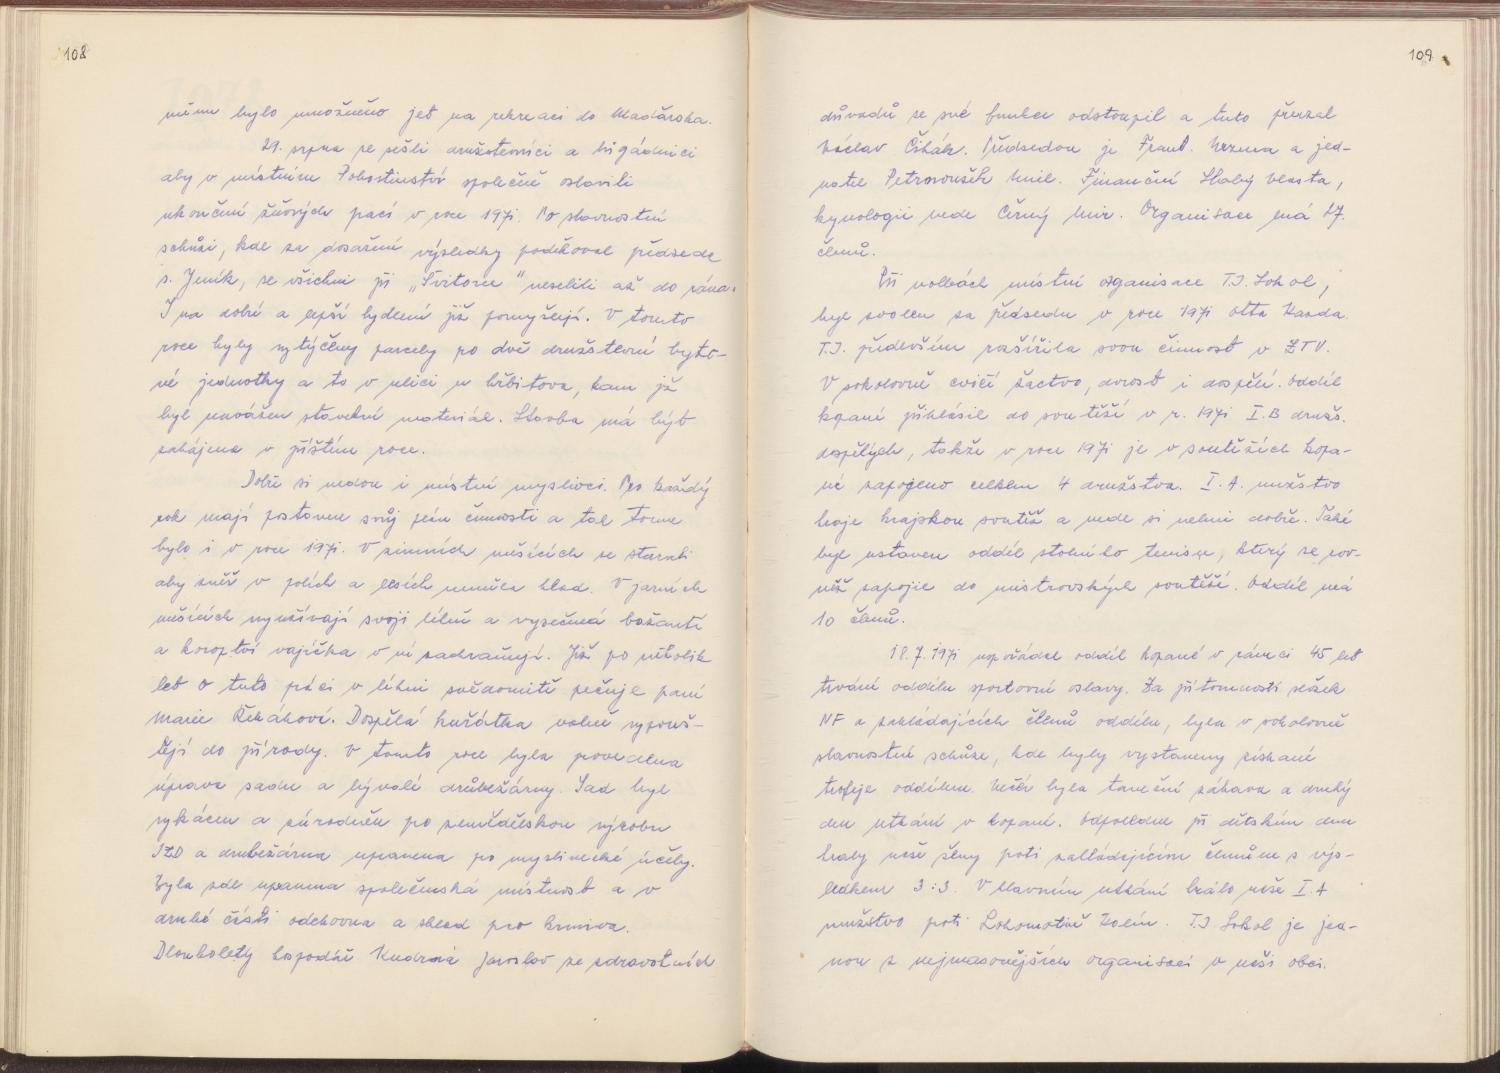 108
němu bylo umožněno jet na rekreaci do Maďarska.
29. srpna se sešli družstevníci a brigádníci
aby v místním Pohostinství společně oslavili
ukončení žňových prací v roce 1971. Po slavnostní
schůzi, kde za dosažení výsledky poděkoval předseda
s. Jeník, se všichni při „Svitorce" veselili až do rána.
I na dobré a lepší bydlení již pomýšlejí. V tomto
roce byly vytýčeny parcely po dvě družstevní byto-
vé jednotky a to v ulici u hřbitova, kam již
byl navážen stavební materiál. Stavba má být
zahájena v příštím roce.
Dobře si vedou i místní myslivci. Pro každý
rok mají postaven svůj plán činnosti a tak tomu
bylo i v roce 1971. V zimních měsících se starali
aby zvěř v polích a lesích neměla hlad. V jarních
měsících využívají svoji líheň a vysečená bažantí
a koroptví vajíčka v ní zachraňují. Již po několik
let o tuto práci v líhni svědomitě pečuje paní
Marie Řeháková. Dospělá kuřátka volně vypouš-
tějí do přírody. V tomto roce byla provedena
úprava sadu a bývalé drůbežárny. Sad byl
vykácen a zúrodněn po zemědělskou výrobu
JZD a drubežárna upravena po myslivecké účely.
Byla zde upravena společenská místnost a v
druhé části odchovna a sklad pro krmiva.
Dlouholetý hospodář Kudrná Jaroslav ze zdravotních
109
důvodů se své funkce odstoupil a tuto převzal
Václav Čihák. Předsedou je Frant. Vrzma a jed-
natel Petrovoušek Mil. Finanční Slabý Vlasta,
kynologii vede Černý Mir. Organisace má 27.
členů.
Při volbách místní organisace T.J. Sokol,
byl zvolen za předsedu v roce 1971 Otta Vanda.
T.J. především rozšířila svou činnost v ZTV.
V sokolovně cvičí žactvo, dorost i dospělí. Oddíl
kopané přihlásil do soutěží v r. 1971 I.B družs.
dospělých, takže v roce 1971 je v soutěžích kopa-
né zapojeno celkem 4 družstva. I.A. mužstvo
hraje krajskou soutěž a vede si velmi dobře. Také
byl ustaven oddíl stolního tenisu, který se rov-
něž zapojil do mistrovských soutěží. Oddíl má
10 členů.
18.7.1971 uspořádal oddíl kopané v rámci 45 let
trvání oddílu sportovní oslavy. Za přítomnosti složek
NF a zakládajících členů oddílu, byla v sokolovně
slavnostní schůze, kde byly vystaveny získané
trofeje oddílem. Večer byla taneční zábava a druhý
den utkání v kopané. Odpoledne při dětském dnu
hrály naše ženy proti zakládajícím členům s výs-
ledkem 3:3. V hlavním utkání hrálo naše I.A
mužstvo proti Lokomotivě Kolín. T.J. Sokol je jed-
nou z nejmasovějších organisací v naší obci.